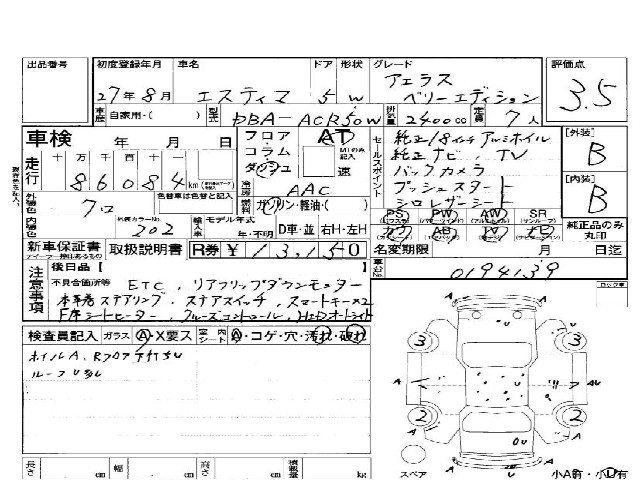 出品番号 初度登録年月 車名 ドア 形状 グレード 評価点
27年8月 エスティマ 5 W アエラス
ベリーエディション 3.5
車歴 自家用・( ) 型式 DBA-ACR50W 排気量 2400cc 定員 7人
車検 年 月 日 フロア AT 純正18インチアルミホイル [外装]
走行 十 万 千 百 十 一 コラム MTのみ記入 セールスポイント 純正ナビ、TV B
86084 km ダッシュ 速 バックカメラ
冷房 AAC プッシュスタート [内装]
外装色 クロ 色替車は色替と記入 燃料 ガソリン・軽油・( ) シロレザーシート B
外装カラーNo. 202 輸入車 モデル年式 PS PW AW SR 純正品のみ丸印
内装色 年・不明 D車・並 右H・左H カワ AB TV ナビ
新車保証書 取扱説明書 R券 ¥13,150 名変期限 月 日迄
注意事項 後日品【 】 車台No. 0194139
不具合箇所等 ETC、リアフリップダウンモニター
本革巻ステアリング、ステアスイッチ、スマートキー×2
F席シートヒーター、クルーズコントロール、HIDオートライト
検査員記入 ガラス A・X要ス 室内シート ・コゲ・穴・汚れ・破れ
ホイルA、
ルーフU多し
3 3
A A A AU
2 2
A A
U
スペア 小A有・小U有
長さ cm 幅 cm 高さ cm 積載量 kg